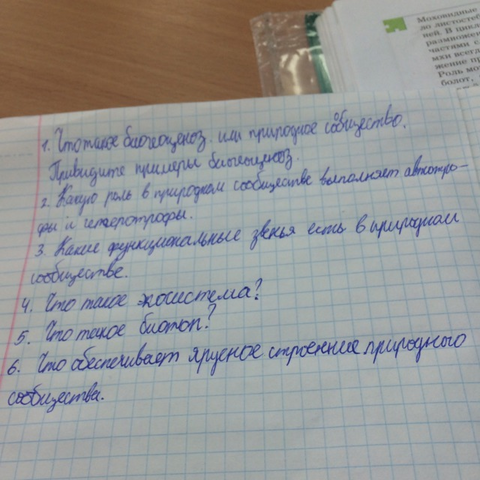 Моховидные
до листостебе
ней. В цикл
размножен
частями с
мхи всегд
жение пр
Роль мо
болот,
1. Что такое биогеоценоз или природное сообщество.
Привидите примеры биогеоценоз.
2. Какую роль в природном сообществе выполняет автотро-
фы и гетеротрофы.
3. Какие функциональные звенья есть в природном
сообществе.
4. Что такое экосистема?
5. Что такое биотоп?
6. Что обеспечивает ярусное строение природного
сообщества.